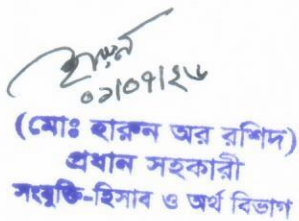 হারুন
০১/০৭/২৬
(মোঃ হারুন অর রশিদ)
প্রধান সহকারী
সংযুক্তি-হিসাব ও অর্থ বিভাগ